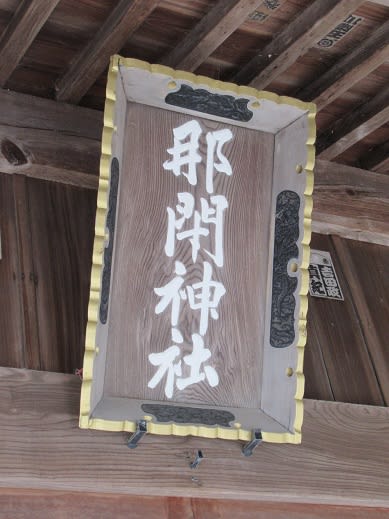 那閇神社